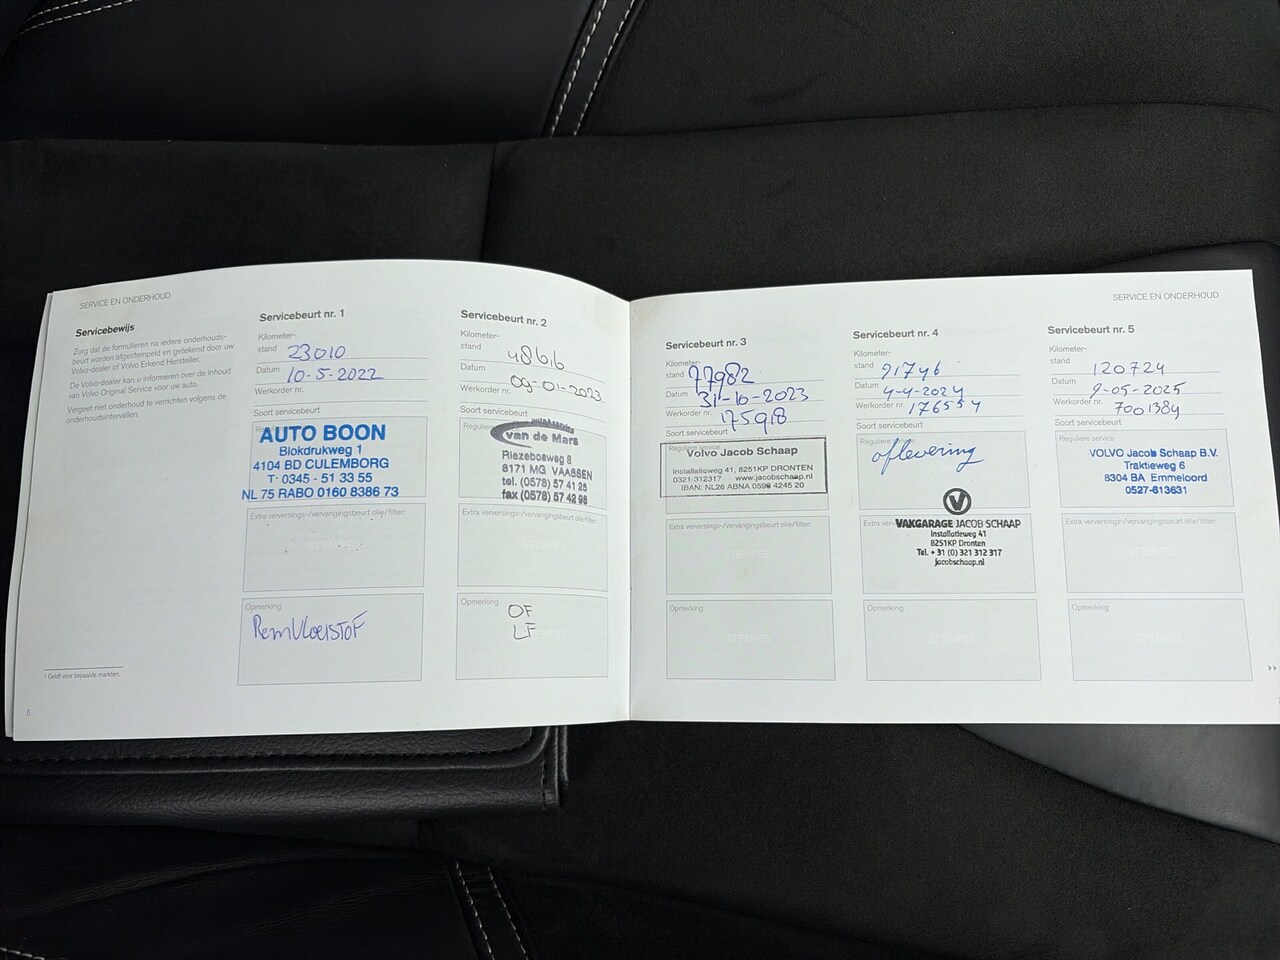 SERVICE EN ONDERHOUD
Servicebewijs
Zorg dat de formulieren na iedere onderhouds-
beurt worden afgestempeld en getekend door uw
Volvo-dealer of Volvo Erkend Hersteller.
De Volvo-dealer kan u informeren over de inhoud
van Volvo Original Service voor uw auto.
Vergeet niet onderhoud te verrichten volgens de
onderhoudsintervallen.
1 Geldt voor bepaalde markten.
6
Servicebeurt nr. 1
Kilometer-
stand 23010
Datum 10-5-2022
Werkorder nr.
Soort servicebeurt
AUTO BOON
Blokdrukweg 1
4104 BD CULEMBORG
T· 0345 - 51 33 55
NL 75 RABO 0160 8386 73
Extra verversings-/vervangingsbeurt olie/filter:
STEMPEL
Opmerking
RemVloeistoF
Servicebeurt nr. 2
Kilometer-
stand 48616
Datum 09-01-2023
Werkorder nr.
Soort servicebeurt
Reguliere
van de Mars
Riezebosweg 8
8171 MG VAASSEN
tel. (0578) 57 41 25
fax (0578) 57 42 98
Extra verversings-/vervangingsbeurt olie/filter:
Opmerking
OF
LF
SERVICE EN ONDERHOUD
Servicebeurt nr. 3
Kilometer-
stand 77982
Datum 31-10-2023
Werkorder nr. 175918
Soort servicebeurt
Reguliere service
Volvo Jacob Schaap
Installatieweg 41, 8251KP DRONTEN
0321-312317 www.jacobschaap.nl
IBAN: NL26 ABNA 0596 4245 20
Extra verversings-/vervangingsbeurt olie/filter:
STEMPEL
Opmerking
STEMPEL
Servicebeurt nr. 4
Kilometer-
stand 91746
Datum 4-4-2024
Werkorder nr. 176554
Soort servicebeurt
Reguliere service
aflevering
VAKGARAGE JACOB SCHAAP
Installatieweg 41
8251KP Dronten
Tel. + 31 (0) 321 312 317
jacobschaap.nl
Opmerking
STEMPEL
Servicebeurt nr. 5
Kilometer-
stand 120724
Datum 9-05-2025
Werkorder nr. 7001384
Soort servicebeurt
Reguliere service
VOLVO Jacob Schaap B.V.
Traktieweg 6
8304 BA Emmeloord
0527-613631
Extra verversings-/vervangingsbeurt olie/filter:
STEMPEL
Opmerking
STEMPEL